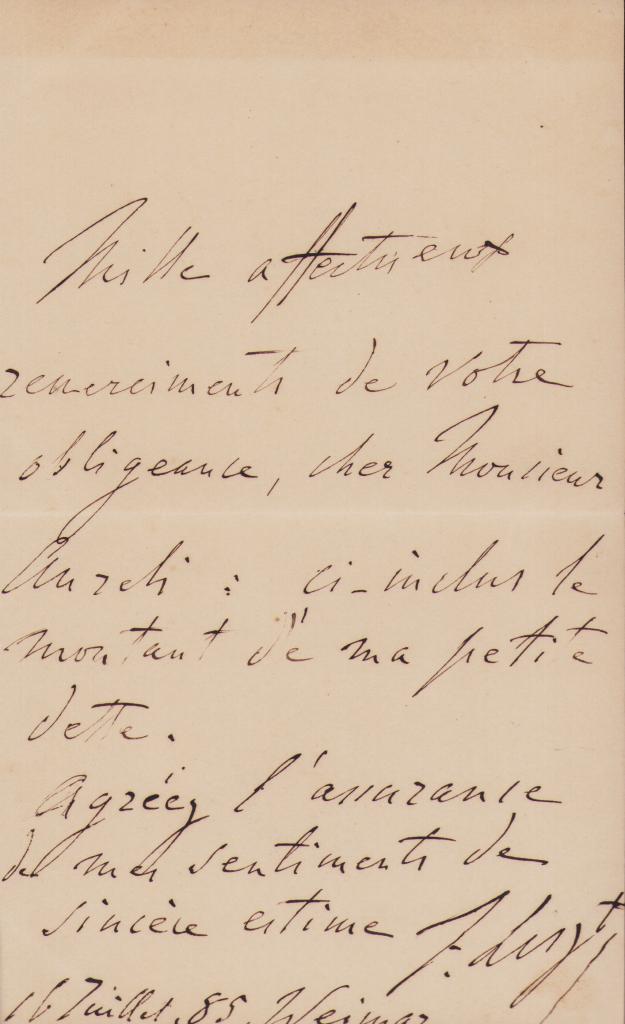 Mille affectueux
remerciments de votre
obligeance, cher Monsieur
Aureli : ci-inclus le
montant de ma petite
dette.
Agréez l'assurance
de mes sentiments de
sincère estime F. Liszt
16 Juillet, 85, Weimar